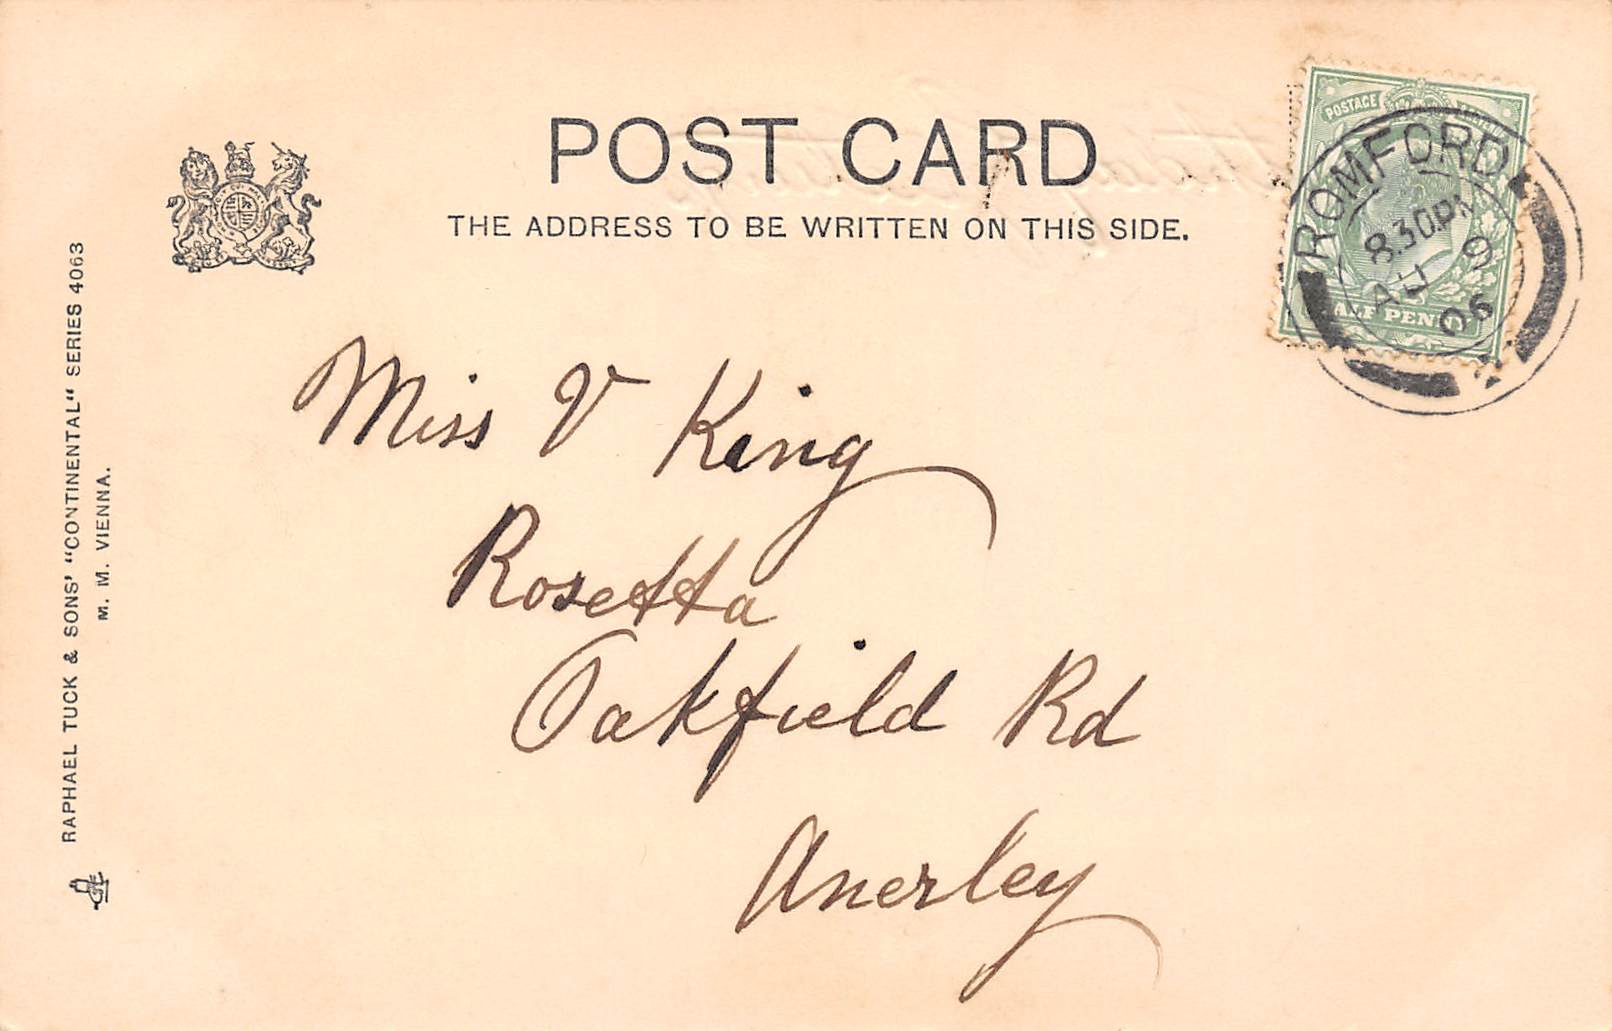 POST CARD
THE ADDRESS TO BE WRITTEN ON THIS SIDE.
POSTAGE
HALF PENNY
ROMFORD
8.30PM
AU 9
06
Miss V King
Rosetta
Oakfield Rd
Anerley
RAPHAEL TUCK & SONS' "CONTINENTAL" SERIES 4063
M. M. VIENNA.